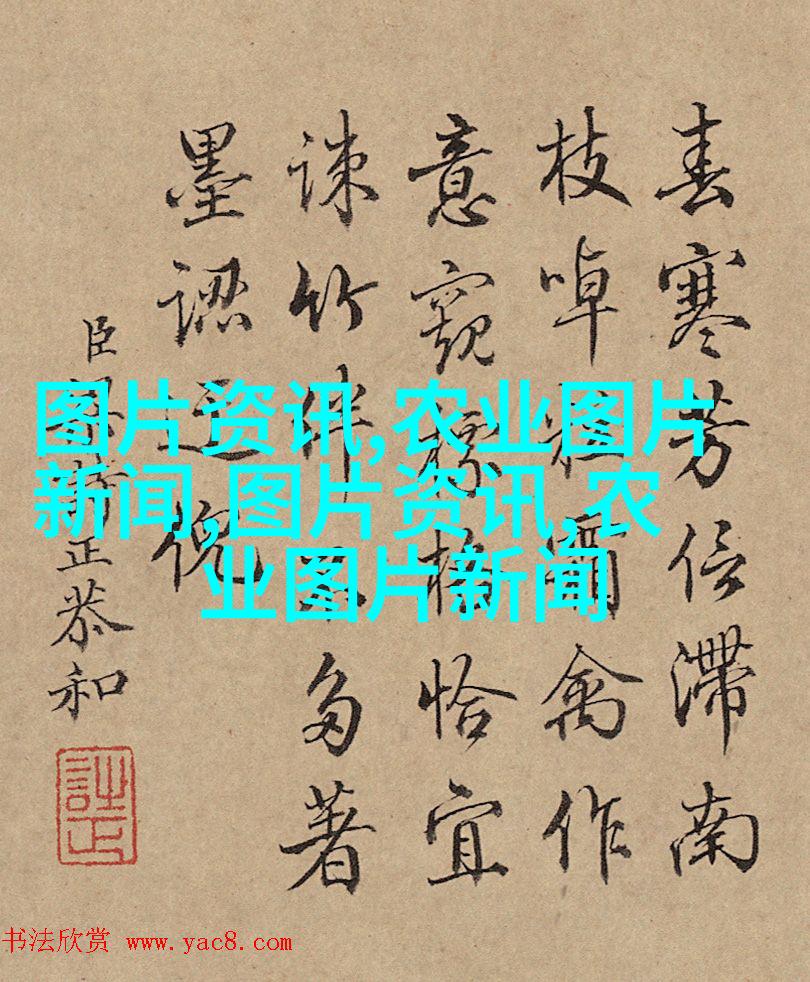 春寒芳信滯南
枝啅禽作
意窺恰宜
竹多著
墨
臣正恭和
图片资讯,农业图片
新闻,图片资讯,农
业图片新闻
书法欣赏 www.yac8.com